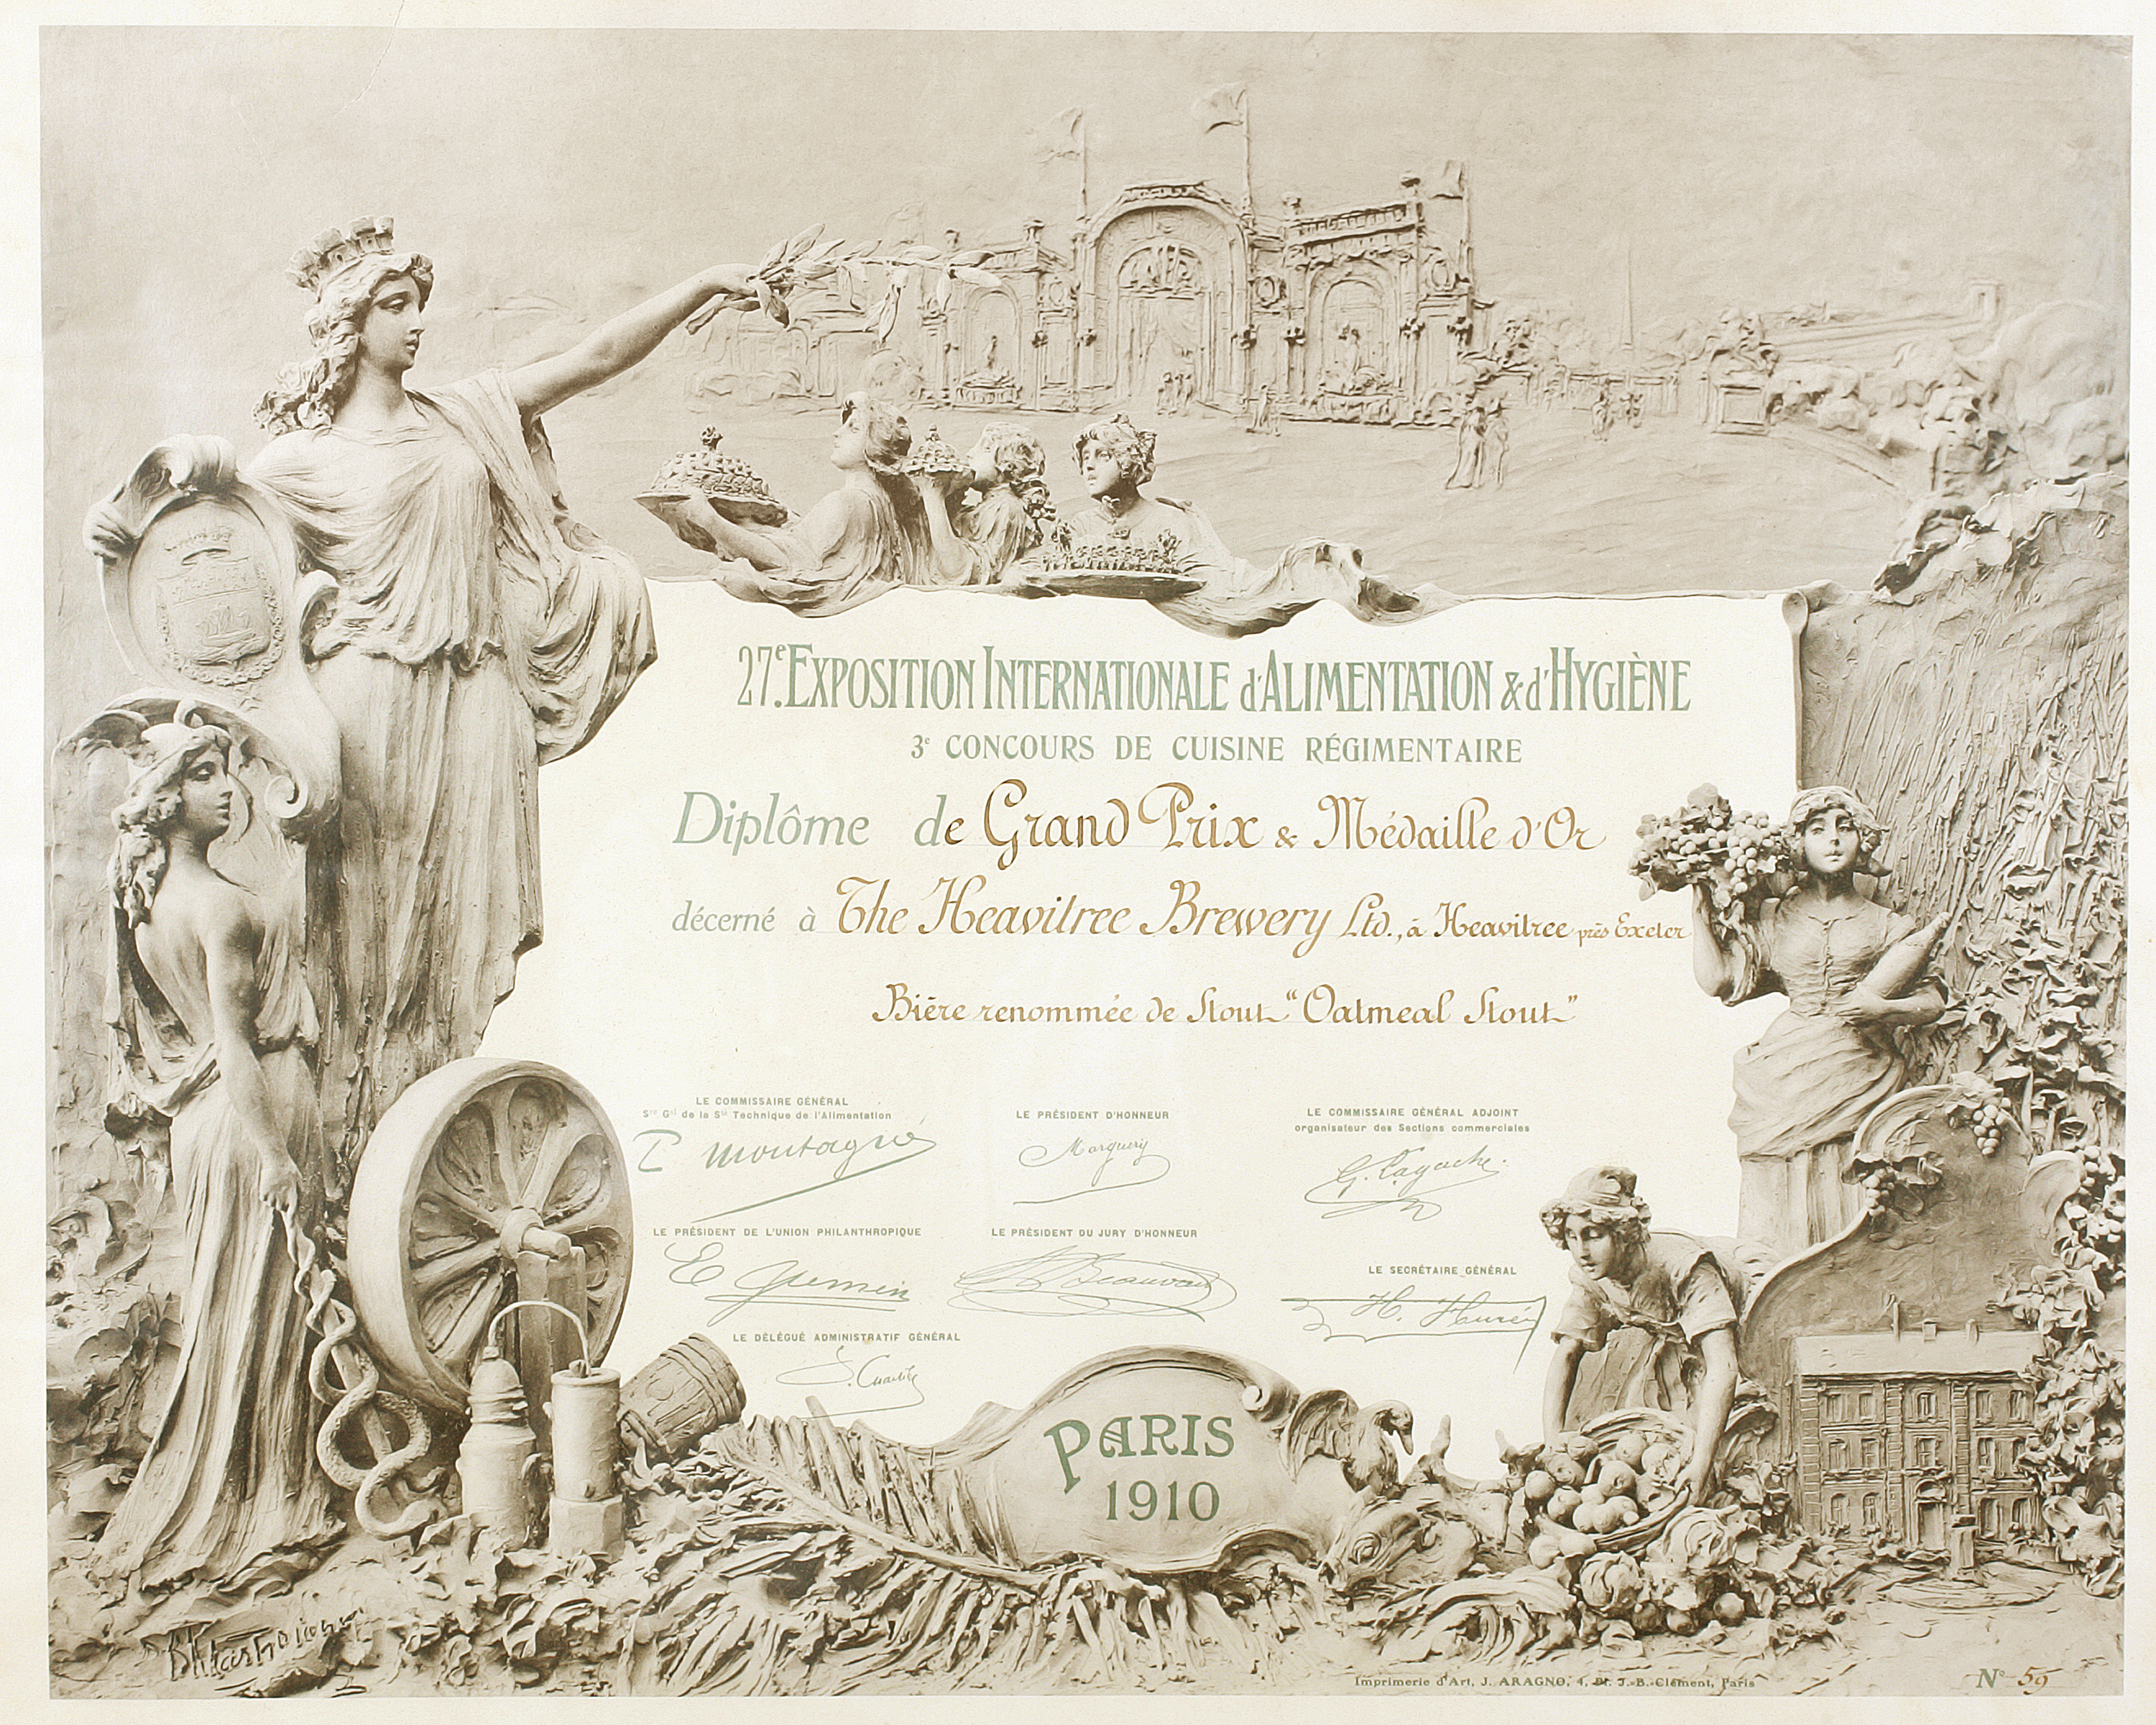 27e. EXPOSITION INTERNATIONALE d'ALIMENTATION & d'HYGIÈNE
3e CONCOURS DE CUISINE RÉGIMENTAIRE
Diplôme de Grand Prix & Médaille d'Or
décerné à The Heavitree Brewery Ltd., à Heavitree près Exeter
Bière renommée de Stout "Oatmeal Stout"
LE COMMISSAIRE GÉNÉRAL
Sre Gal de la Sté Technique de l'Alimentation
P Montagné
LE PRÉSIDENT D'HONNEUR
Marguery
LE COMMISSAIRE GÉNÉRAL ADJOINT
organisateur des Sections commerciales
G. Lagache
LE PRÉSIDENT DE L'UNION PHILANTHROPIQUE
LE PRÉSIDENT DU JURY D'HONNEUR
LE SECRÉTAIRE GÉNÉRAL
LE DÉLÉGUÉ ADMINISTRATIF GÉNÉRAL
PARIS
1910
Imprimerie d'Art, J. ARAGNO, 4, Pl. J.-B.-Clément, Paris
No 59